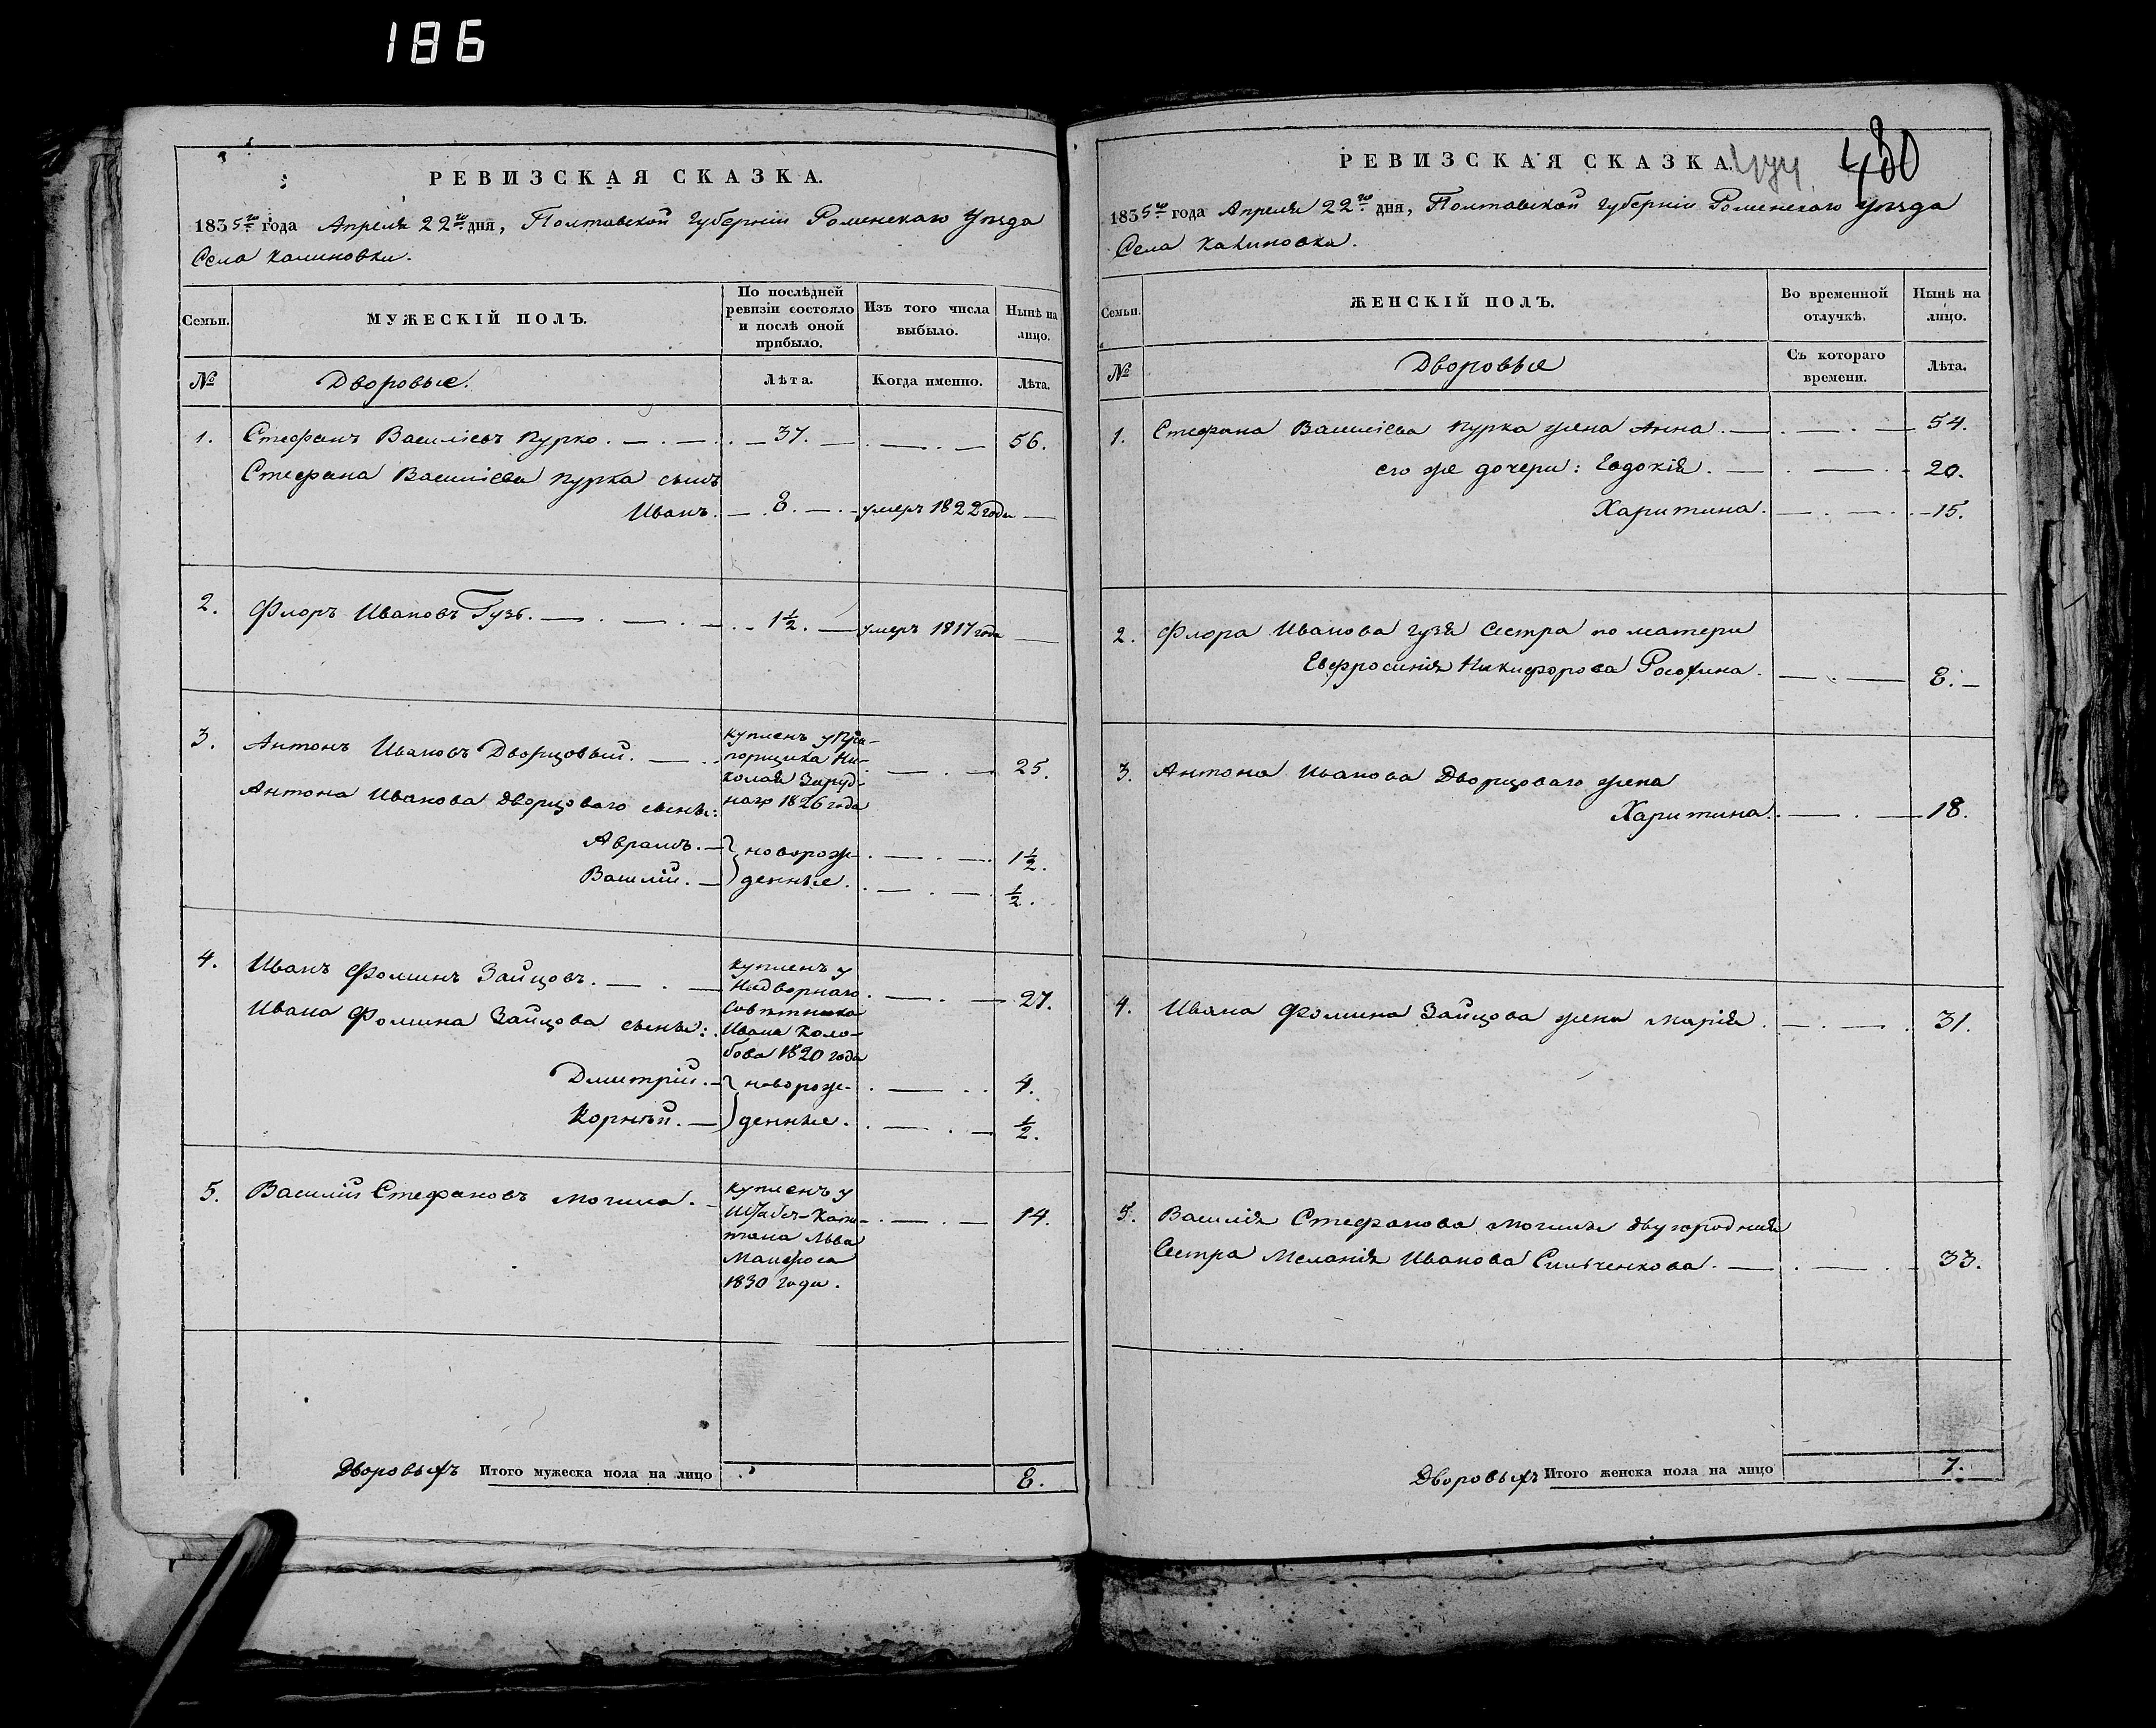 186
РЕВИЗСКАЯ СКАЗКА.
1835го года Апреля 22го дня, Полтавской Губерніи Роменскаго Уѣзда
Села Калиновки.
Семьи.
МУЖЕСКІЙ ПОЛЪ.
По послѣдней
ревизіи состояло
и послѣ оной
прибыло.
Изъ того числа
выбыло.
Нынѣ на
лицо.
№
Дворовые.
Лѣта.
Когда именно.
Лѣта.
1. Стефанъ Василіевъ Пурко. 37. 56.
Стефана Василіева Пурка сынъ
Иванъ. 8. умеръ 1822 года
2. Флоръ Ивановъ Гузь. 1½. умеръ 1817 года
3. Антонъ Ивановъ Дворцовый. 25.
купленъ у Пра-
порщика Ни-
колая Заруд-
наго 1826 года
Антона Иванова Дворцоваго сыны:
Аврамъ. новорож- 1½.
Василій. денные. ½.
4. Иванъ Фоминъ Зайцовъ. 27.
купленъ у
Надворнаго
Совѣтника
Ивана Коло-
бова 1820 года
Ивана Фомина Зайцова сыны:
Дмитрій. новорож- 4.
Корнѣй. денные. ½.
5. Василій Стефановъ Могила. 14.
купленъ у
Штабсъ-Капи-
тана Льва
Манфоса
1830 года.
Дворовыхъ Итого мужеска пола на лицо 8.
РЕВИЗСКАЯ СКАЗКА.
480
1835го года Апреля 22го дня, Полтавской Губерніи Роменскаго Уѣзда
Села Калиновки.
Семьи.
ЖЕНСКІЙ ПОЛЪ.
Во временной
отлучкѣ.
Нынѣ на
лицо.
№
Дворовые
Съ котораго
времени.
Лѣта.
1. Стефана Василіева Пурка жена Анна. 54.
его же дочери: Евдокія. 20.
Харитина. 15.
2. Флора Иванова Гузя Сестра по матери
Евфросинія Никифорова 8.
3. Антона Иванова Дворцоваго жена
Харитина. 18.
4. Ивана Фомина Зайцова жена Марія. 31.
5. Василія Стефанова Могилы двуюродная
Сестра Меланія Иванова Сильченкова. 33.
Дворовыхъ Итого женска пола на лицо 7.